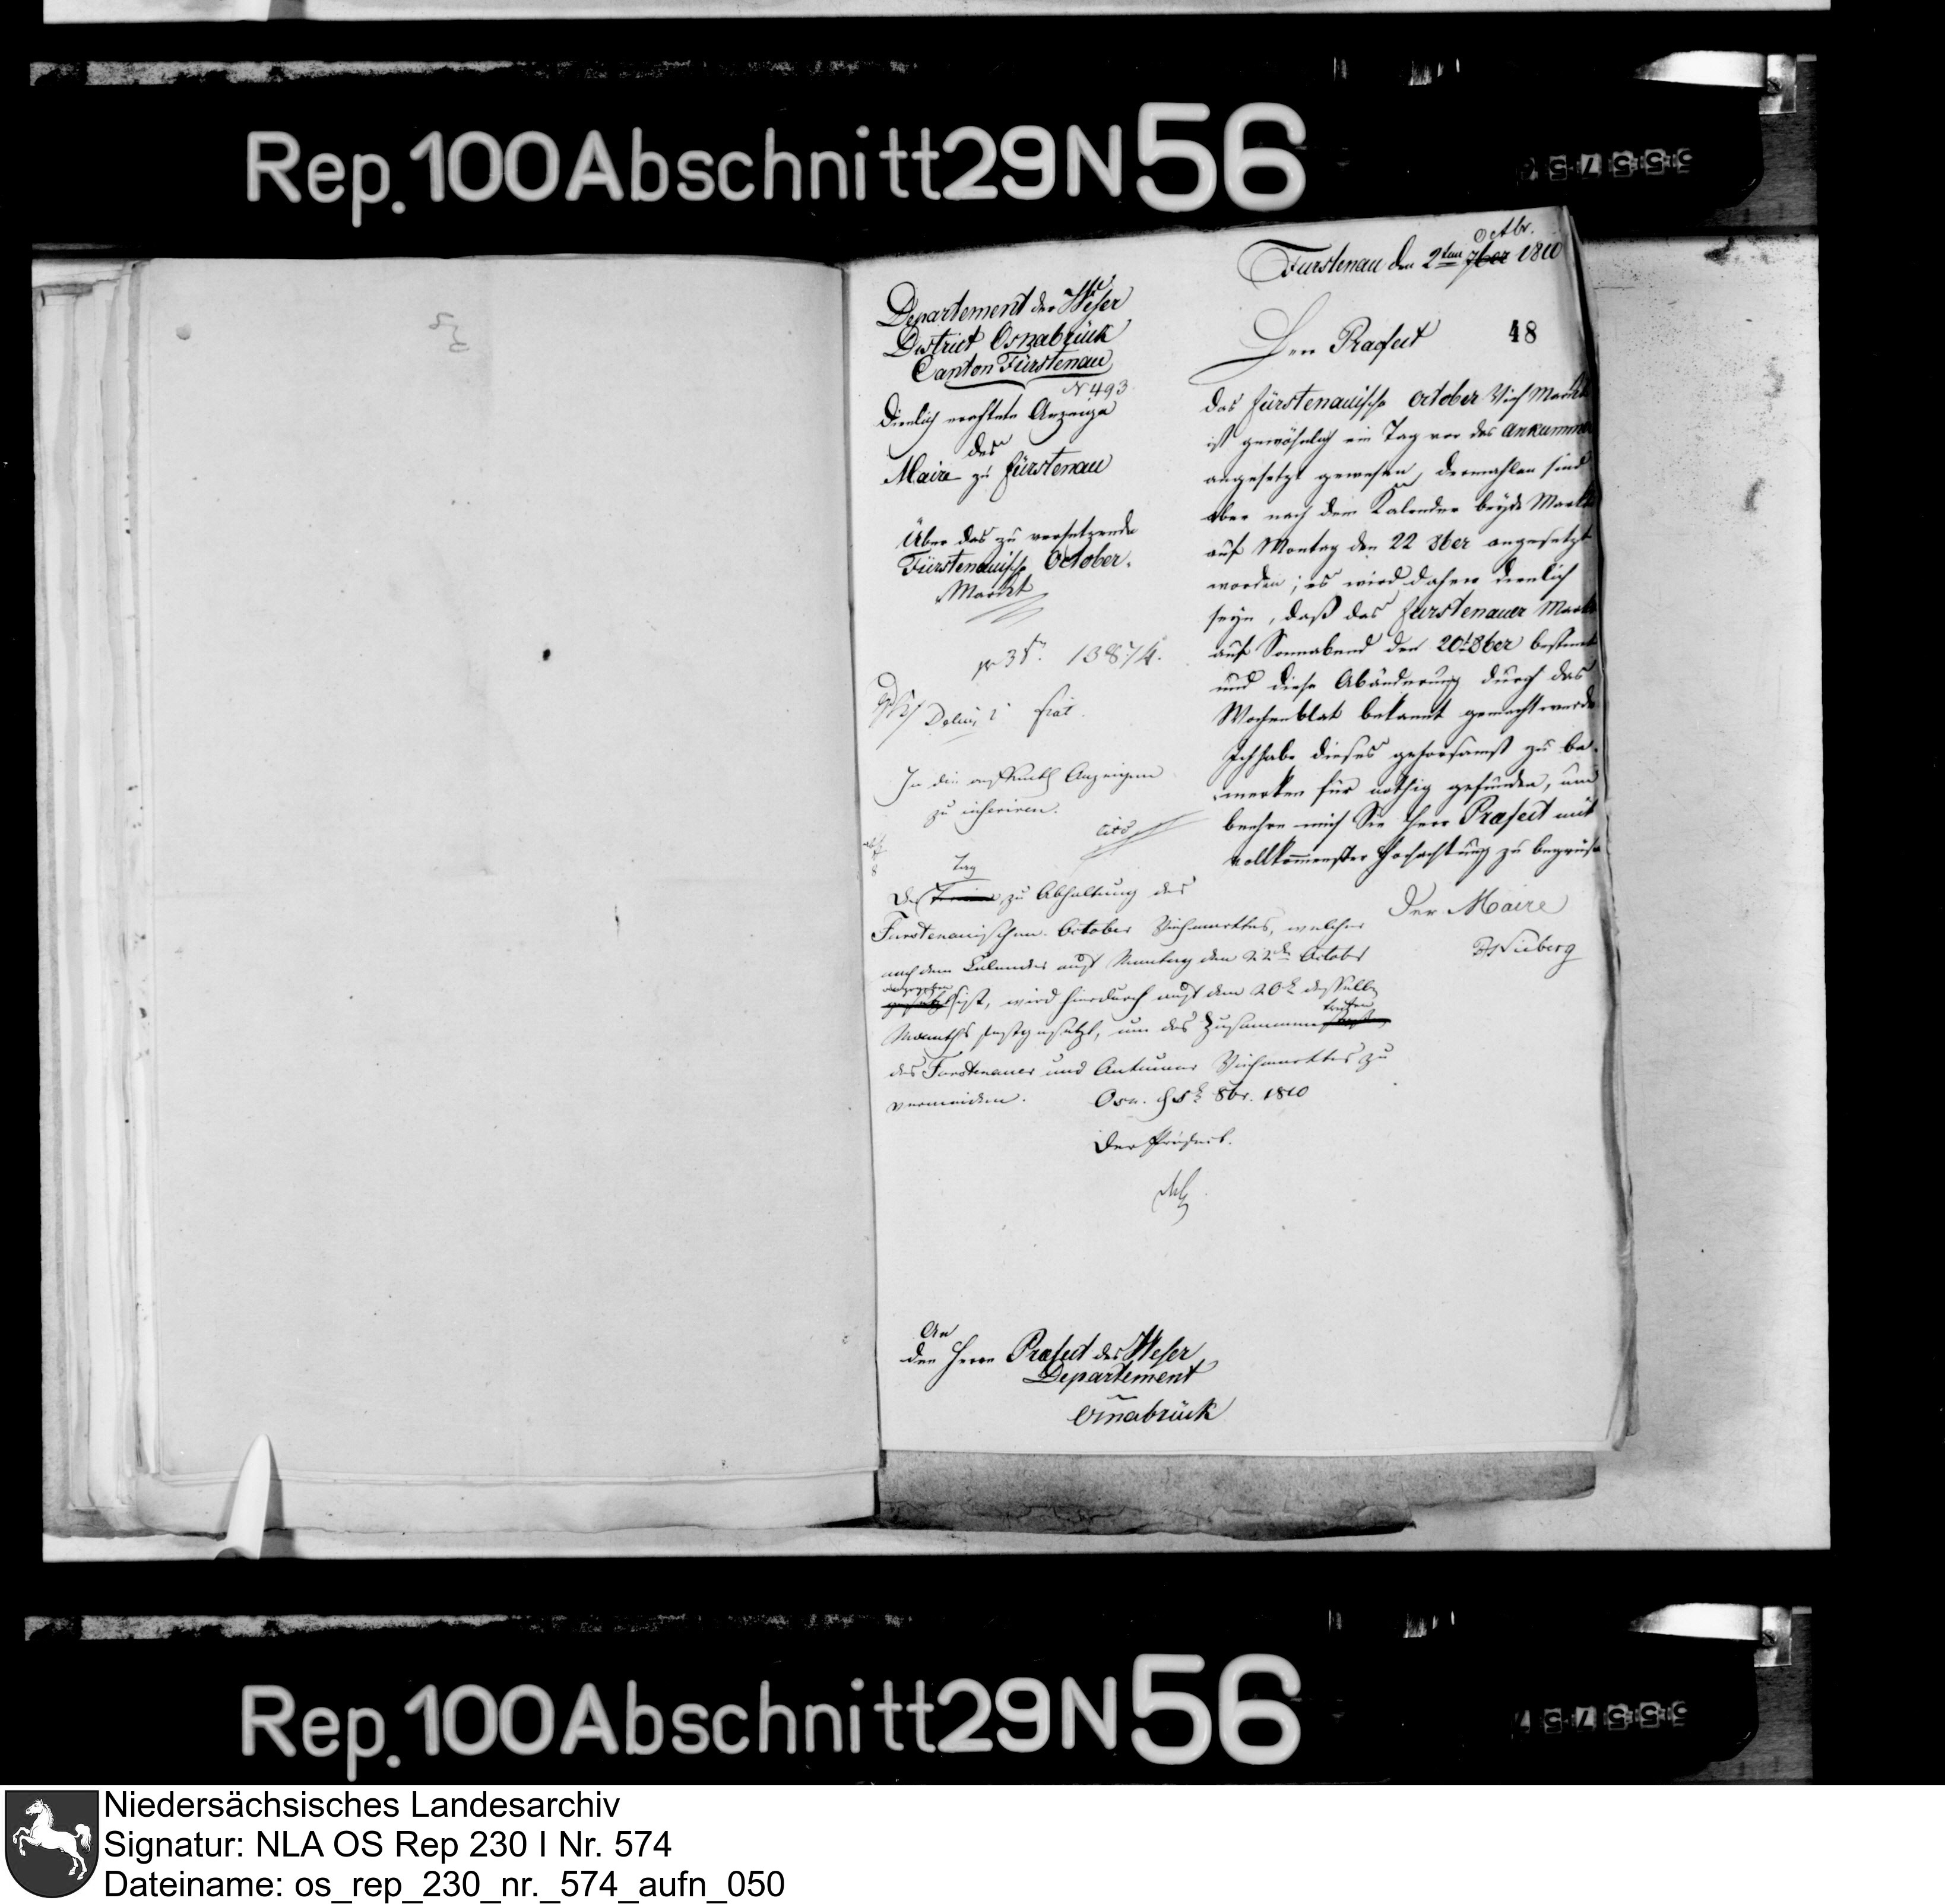 Rep. 100 Abschnitt 29 N 56
Octbr.
Furstenau den 2ten 7ber 1810
48
Departement der Weser
District Osnabrück
Canton Fürstenau
N 493
Dienlich erachtete Anzeige
des
Maire zu Fürstenau
Über das zu versetzende
Fürstenauische October-
Markt
pr 3t 13874.
fiat
In die öffentl Anzeigen
zu inseriren.
cito
Herr Präfect
Das Fürstenauische October Vieh Markt
ist gewöhnlich ein Tag vor das Ankummer
angesetzt gewesen, dermahlen sind
aber nach dem Kalender beyde Markte
auf Montag den 22 8ber angesetzt
worden; es wird daher dienlich
seyn, daß das Furstenauer Markt
auf Sonnabend den 20t 8ber bestimt
und diese Abänderung durch das
Wochenblat bekannt gemacht werde
Ich habe dieses gehorsamst zu be-
merken für nöthig gefunden, und
beehre mich Sie Herr Präfect mit
vollkommenster Hochachtung zu begrüßen
Der Maire
Tag
Der Termin zu Abhaltung des
Furstenauischen October Viehmarktes, welcher
nach dem Calender auf Montag den 22ten October
angegeben
ist, wird hierdurch auf den 20t desselben
treffen
Monaths festgesetzt, um das Zusammen
des Furstenauer und Ankumer Viehmarktes zu
vermeiden. Osn. d 5t 8br. 1810
Der Präfect.
An
den Herrn Präfect des Weser
Departement
Osnabrück
Rep. 100 Abschnitt 29 N 56
Niedersächsisches Landesarchiv
Signatur: NLA OS Rep 230 I Nr. 574
Dateiname: os_rep_230_nr._574_aufn_050